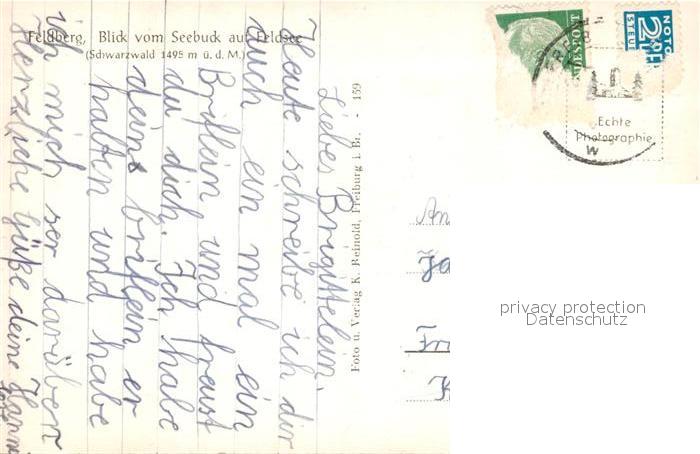 Feldberg, Blick vom Seebuck auf Feldsee
(Schwarzwald 1495 m ü. d. M.)
Liebes Brigittelein,
Heute schreibe ich dir
auch ein mal ein
Brieflein und freust
du dich. Ich habe
deine brieflein er
halten und habe
ich mich ser darüber
Herzliche Güße deine Hanne
Foto u. Verlag K. Reinold, Freiburg i. Br. - 159
NOTO
2
STEU
Echte
Photographie
W
An
Ja
Fr
K
privacy protection
Datenschutz